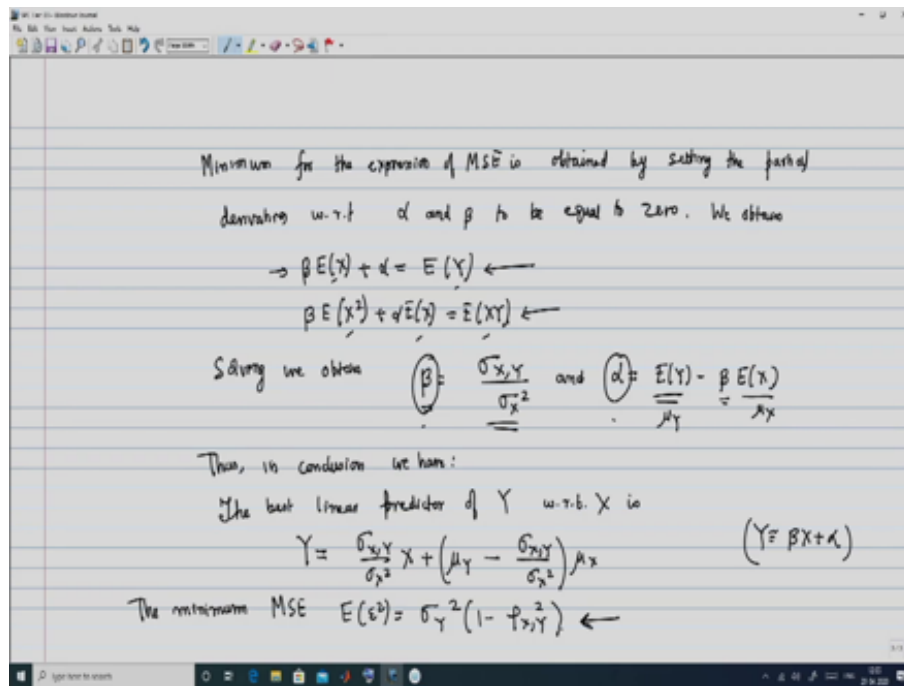 File Edit View Insert Actions Tools Help
Minimum for the expression of MSE is obtained by setting the partial
derivatives w.r.t α and β to be equal to zero. We obtain
→ β E(X) + α = E(Y) ←
β E(X²) + α E(X) = E(XY) ←
Solving we obtain β = σ_{X,Y} / σ_X² and α = E(Y) - β E(X)
μ_Y μ_X
Thus, in conclusion we have:
The best linear predictor of Y w.r.t. X is
Y = σ_{X,Y} / σ_X² X + (μ_Y - σ_{X,Y} / σ_X²) μ_X (Y = βX + α)
The minimum MSE E(ε²) = σ_Y² (1 - ρ²_{X,Y}) ←
Type here to search